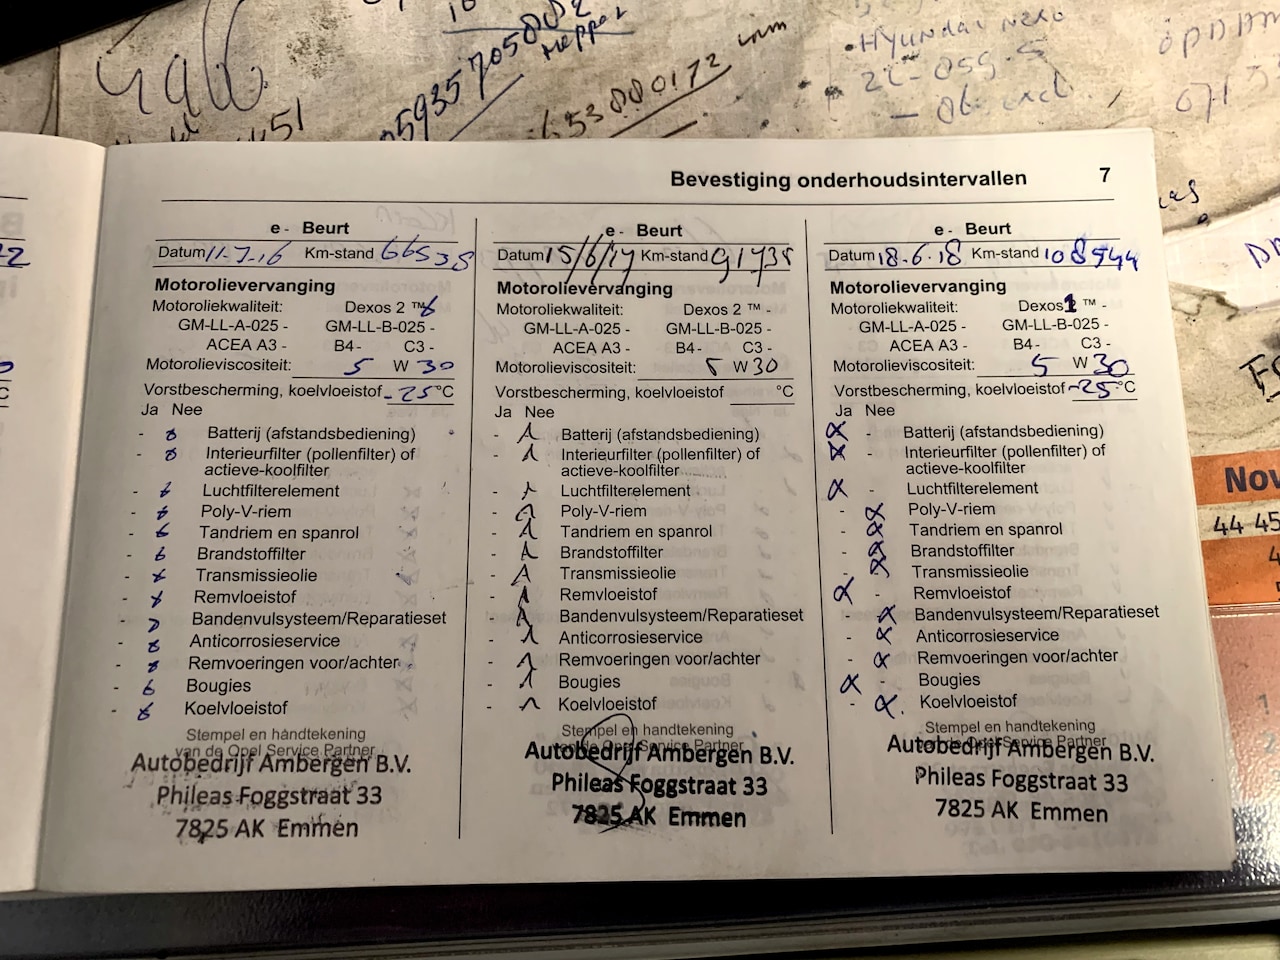 Gall
0593570508
Meppel
653880172
inm
Hyundai Nexo
22-055-5
- 86 excl
071
451
Bevestiging onderhoudsintervallen 7
e - Beurt
Datum 11-7-16 Km-stand 66535
Motorolievervanging
Motoroliekwaliteit: Dexos 2 ™
GM-LL-A-025 - GM-LL-B-025 -
ACEA A3 - B4 - C3 -
Motorolieviscositeit: 5 W 30
Vorstbescherming, koelvloeistof -25 °C
Ja Nee
Batterij (afstandsbediening)
Interieurfilter (pollenfilter) of
actieve-koolfilter
Luchtfilterelement
Poly-V-riem
Tandriem en spanrol
Brandstoffilter
Transmissieolie
Remvloeistof
Bandenvulsysteem/Reparatieset
Anticorrosieservice
Remvoeringen voor/achter
Bougies
Koelvloeistof
Stempel en handtekening
van de Opel Service Partner
Autobedrijf Ambergen B.V.
Phileas Foggstraat 33
7825 AK Emmen
e - Beurt
Datum 15/6/17 Km-stand 91735
Motorolievervanging
Motoroliekwaliteit: Dexos 2 ™ -
GM-LL-A-025 - GM-LL-B-025 -
ACEA A3 - B4 - C3 -
Motorolieviscositeit: 5 W 30
Vorstbescherming, koelvloeistof °C
Ja Nee
Batterij (afstandsbediening)
Interieurfilter (pollenfilter) of
actieve-koolfilter
Luchtfilterelement
Poly-V-riem
Tandriem en spanrol
Brandstoffilter
Transmissieolie
Remvloeistof
Bandenvulsysteem/Reparatieset
Anticorrosieservice
Remvoeringen voor/achter
Bougies
Koelvloeistof
Stempel en handtekening
van de Opel Service Partner
Autobedrijf Ambergen B.V.
Phileas Foggstraat 33
7825 AK Emmen
e - Beurt
Datum 18-6-18 Km-stand 108544
Motorolievervanging
Motoroliekwaliteit: Dexos 1 ™ -
GM-LL-A-025 - GM-LL-B-025 -
ACEA A3 - B4 - C3 -
Motorolieviscositeit: 5 W 30
Vorstbescherming, koelvloeistof -25 °C
Ja Nee
Batterij (afstandsbediening)
Interieurfilter (pollenfilter) of
actieve-koolfilter
Luchtfilterelement
Poly-V-riem
Tandriem en spanrol
Brandstoffilter
Transmissieolie
Remvloeistof
Bandenvulsysteem/Reparatieset
Anticorrosieservice
Remvoeringen voor/achter
Bougies
Koelvloeistof
Stempel en handtekening
van de Opel Service Partner
Autobedrijf Ambergen B.V.
Phileas Foggstraat 33
7825 AK Emmen
Nov
44 45